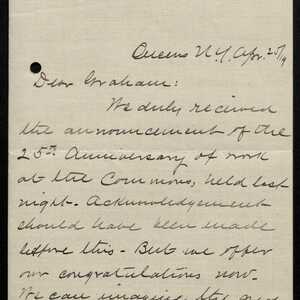 Queens N.Y. Apr. 25/19
Dear Graham:
We duly received
the announcement of the
25th Anniversary of work
at the Commons, held last
night. Acknowledgement
should have been made
before this. But we offer
our congratulations now.
We can imagine the good